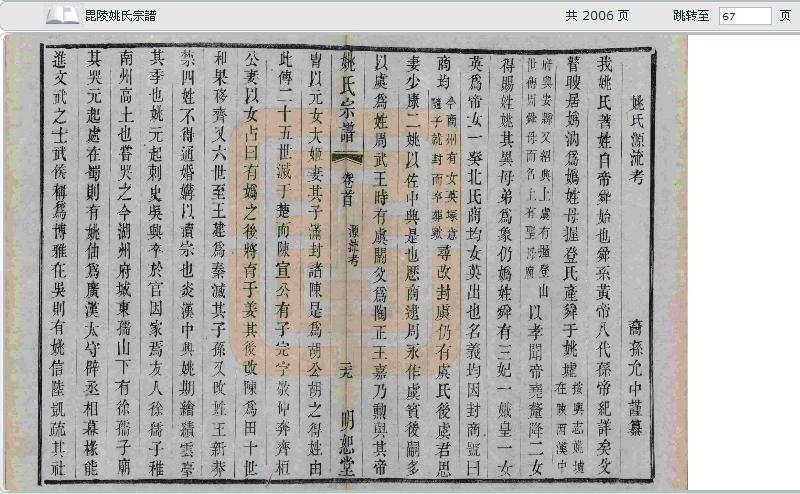 毘陵姚氏宗譜
共 2006 页
跳转至 67 页
姚氏源流考
裔孫允中謹纂
我姚氏著姓自帝舜始也舜系黃帝八代孫帝紀詳矣父
瞽瞍居嬀汭爲嬀姓母握登氏產舜于姚墟 按輿志姚墟在陝西漢中
府興安縣又紹興上虞有握登山世傳因舜母而名上有聖母廟 以孝聞帝堯釐降二女
得賜姓姚其異母弟爲象仍嬀姓舜有三妃一娥皇一女
英爲帝女一癸北氏商均女英出也名義均因封商號曰
商均 今商州有女英塚意隨子就封而卒葬歟 尋改封虞仍有虞氏後虞君思
妻少康二姚以佐中興是也歷商逮周永作虞賓後嗣多
以虞爲姓周武王時有虞閼父爲陶正王嘉乃勲與其帝
胄以元女大姬妻其子滿封諸陳是爲胡公胡之得姓由
此傳二十五世滅于楚而陳宣公有子完字敬仲奔齊桓
公妻以女占曰有嬀之後將育于姜其後改陳爲田十世
和果移齊又六世至王建爲秦滅其子孫又改姓王新莽
禁四姓不得通婚媾以瀆宗也炎漢中興姚期繪績雲臺
其季也姚元起刺史吳興卒於官因家焉友人徐孺子稚
南州高士也嘗哭之今湖州府城東孺山下有徐孺子廟
其哭元起處在蜀則有姚伷爲廣漢太守辟丞相幕椽能
進文武之士武侯稱爲博雅在吳則有姚信陸凱疏其社
姚氏宗譜
卷首
源流考
明恕堂